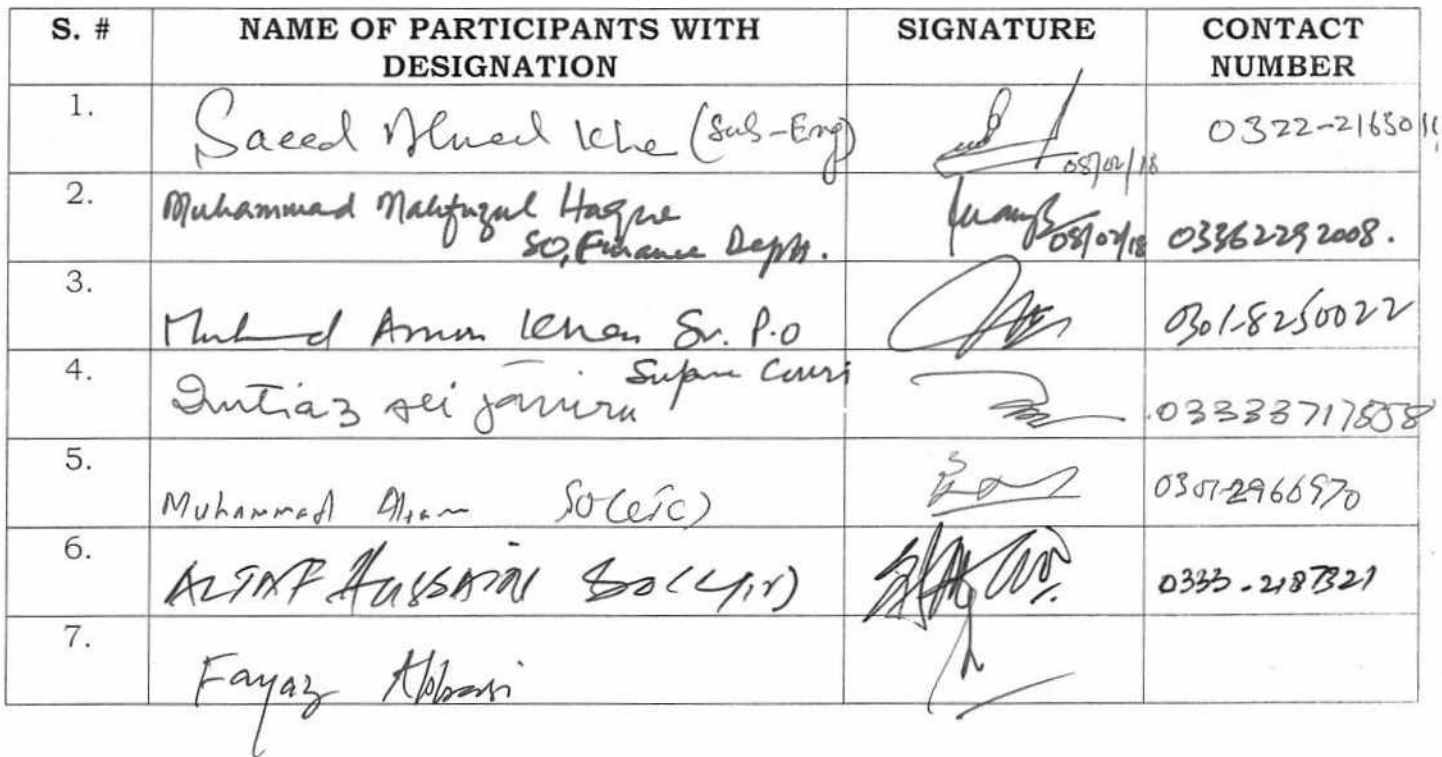 S. # NAME OF PARTICIPANTS WITH DESIGNATION SIGNATURE CONTACT NUMBER
1. Saeed Ahmed Khan (Sub-Eng) 08/02/18 0322-2163011
2. Muhammad Mahfuzul Haque
SO, Finance Deptt. 08/02/18 03362292008.
3. Khan Sr. P.O 0301-8250022
4. Imtiaz Ali 
5. Muhammad SO 0301-2966970
6. ALTAF HUSSAIN SO 0333-2187321
7. Fayaz Abbasi